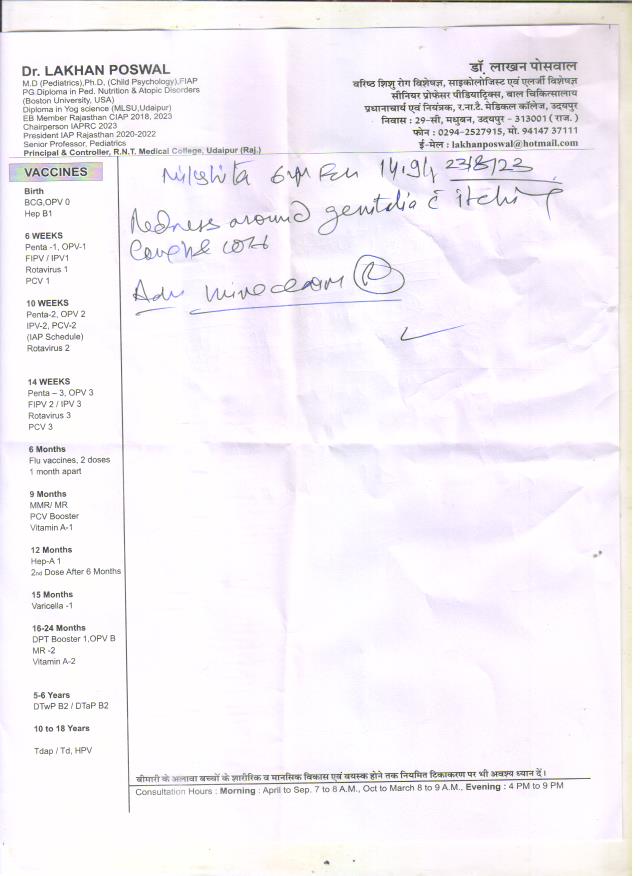 Dr. LAKHAN POSWAL
M.D (Pediatrics),Ph.D, (Child Psychology),FIAP
PG Diploma in Ped. Nutrition & Atopic Disorders
(Boston University, USA)
Diploma in Yog science (MLSU,Udaipur)
EB Member Rajasthan CIAP 2018, 2023
Chairperson IAPRC 2023
President IAP Rajasthan 2020-2022
Senior Professor, Pediatrics
Principal & Controller, R.N.T. Medical College, Udaipur (Raj.)
डॉ. लाखन पोसवाल
वरिष्ठ शिशु रोग विशेषज्ञ, साइकोलोजिस्ट एवं एलर्जी विशेषज्ञ
सीनियर प्रोफेसर पीडियाट्रिक्स, बाल चिकित्सालय
प्रधानाचार्य एवं नियंत्रक, र.ना.टै. मेडिकल कॉलेज, उदयपुर
निवास : 29-सी, मधुबन, उदयपुर - 313001 ( राज. )
फोन : 0294-2527915, मो. 94147 37111
ई-मेल : lakhanposwal@hotmail.com
23/8/23
Redness around genitalia c̄ itching
Adv
VACCINES
Birth
BCG,OPV 0
Hep B1
6 WEEKS
Penta -1, OPV-1
FIPV / IPV1
Rotavirus 1
PCV 1
10 WEEKS
Penta-2, OPV 2
IPV-2, PCV-2
(IAP Schedule)
Rotavirus 2
14 WEEKS
Penta – 3, OPV 3
FIPV 2 / IPV 3
Rotavirus 3
PCV 3
6 Months
Flu vaccines, 2 doses
1 month apart
9 Months
MMR/ MR
PCV Booster
Vitamin A-1
12 Months
Hep-A 1
2nd Dose After 6 Months
15 Months
Varicella -1
16-24 Months
DPT Booster 1,OPV B
MR -2
Vitamin A-2
5-6 Years
DTwP B2 / DTaP B2
10 to 18 Years
Tdap / Td, HPV
बीमारी के अलावा बच्चों के शारीरिक व मानसिक विकास एवं वयस्क होने तक नियमित टिकाकरण पर भी अवश्य ध्यान दें।
Consultation Hours : Morning : April to Sep. 7 to 8 A.M., Oct to March 8 to 9 A.M., Evening : 4 PM to 9 PM